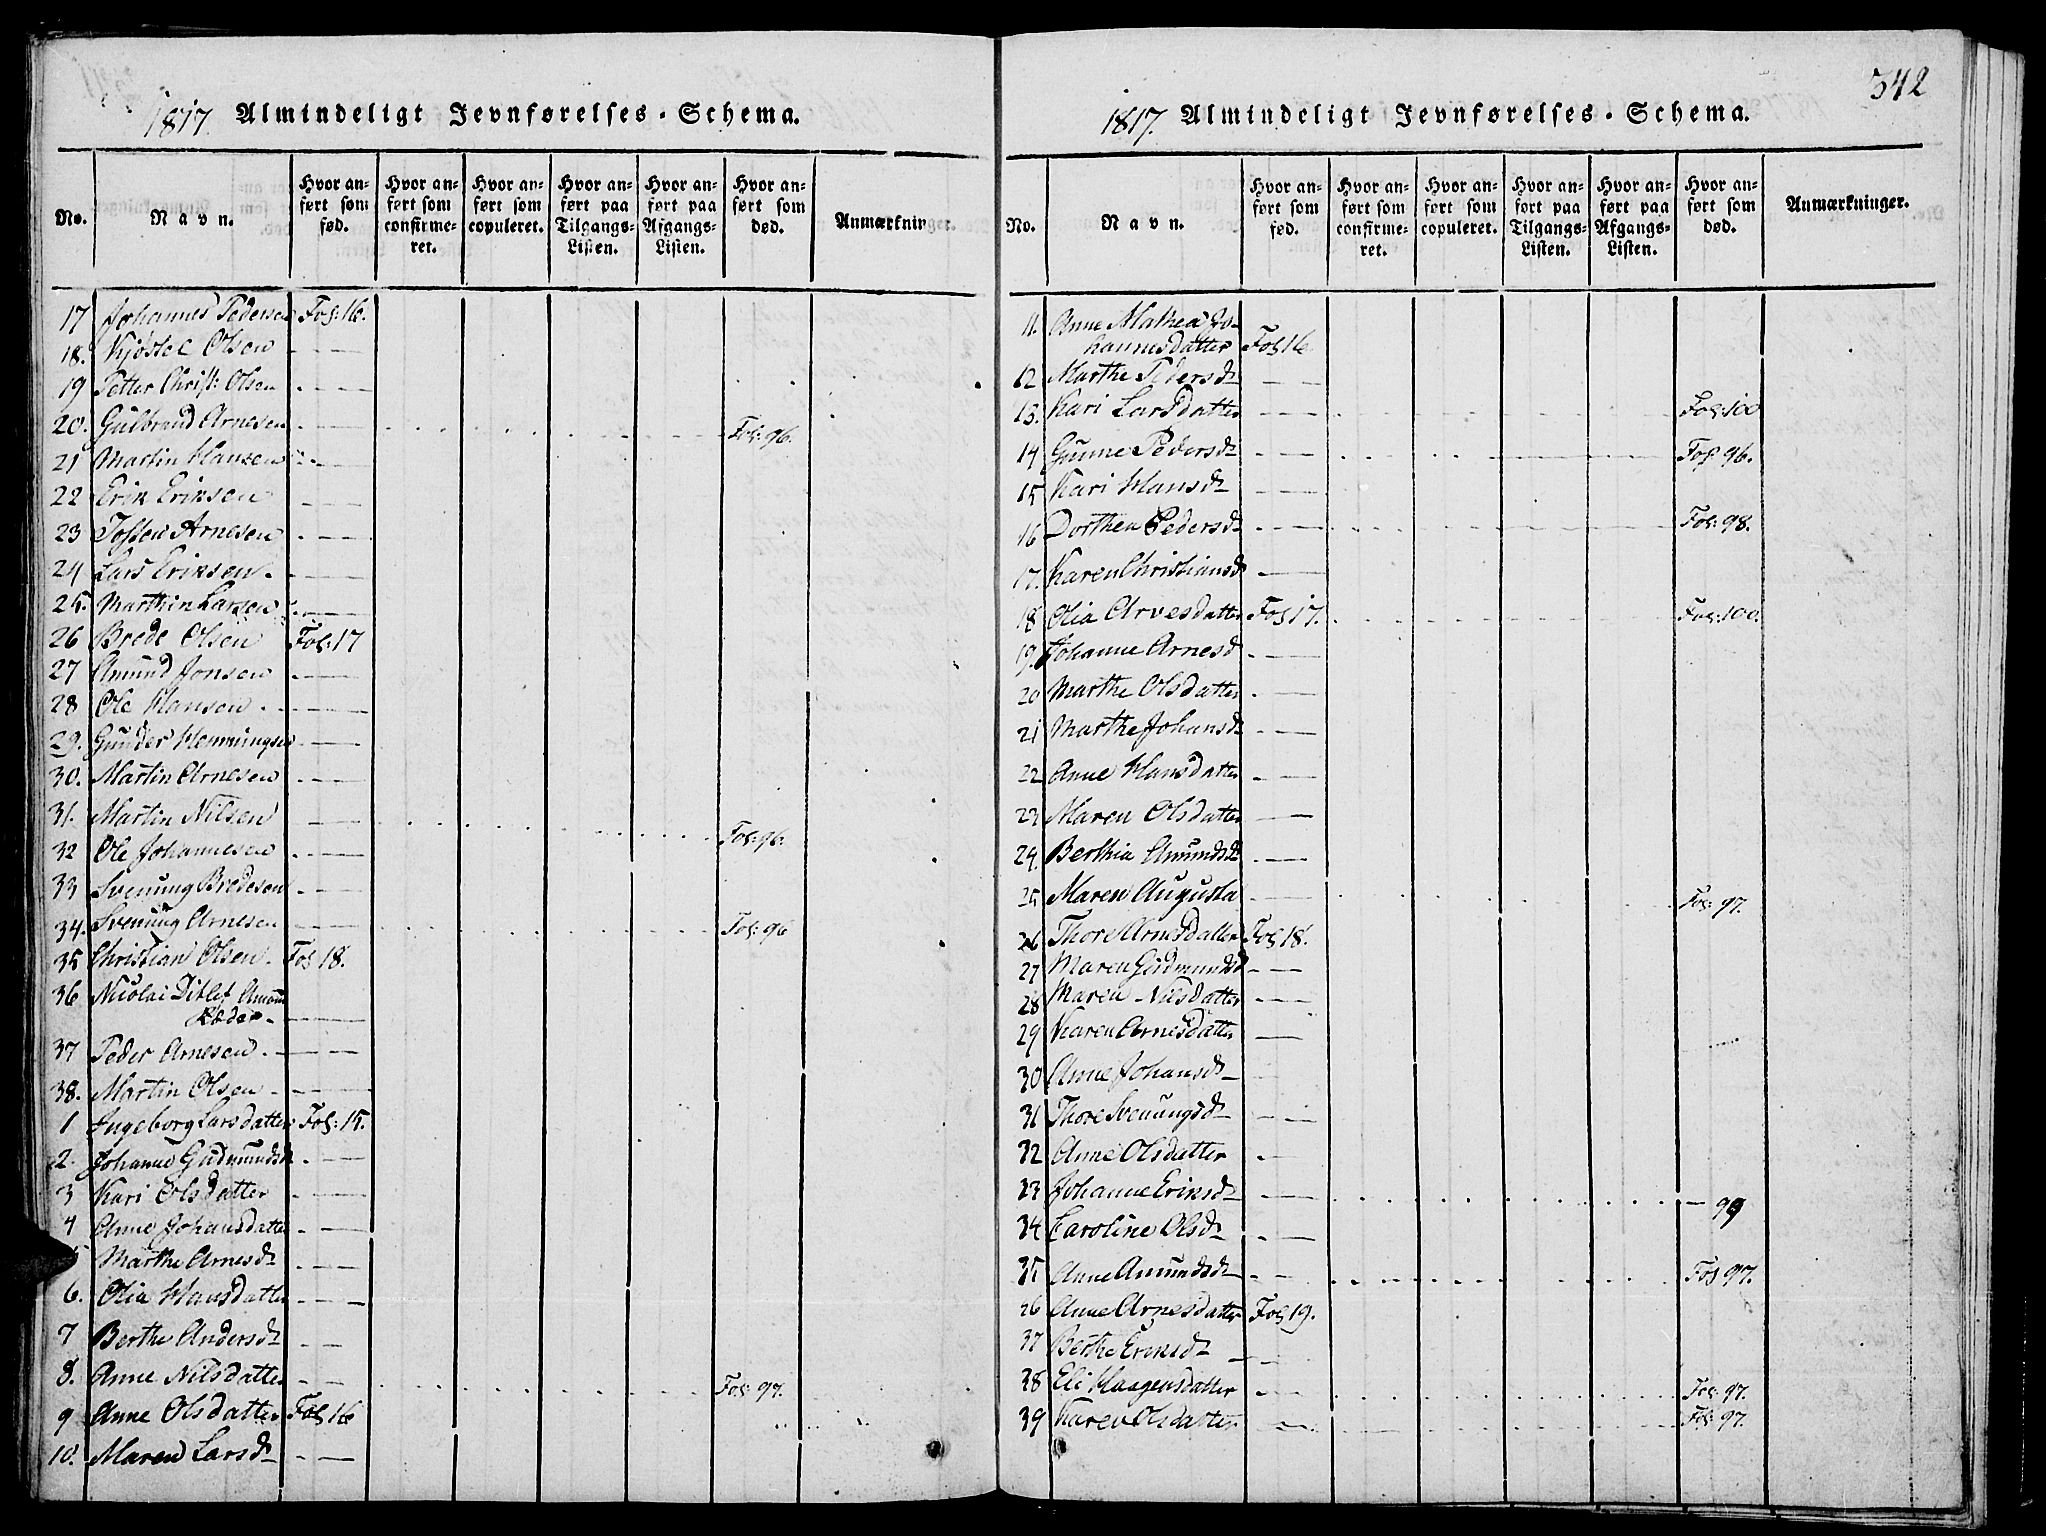 1817. Almindeligt Jevnførelses-Schema.
No. Navn. Hvor anført som fød. Hvor anført som confirmeret. Hvor anført som copuleret. Hvor anført paa Tilgangs-Listen. Hvor anført paa Afgangs-Listen. Hvor anført som død. Anmærkninger.
17 Johannes Pedersen Fol: 16.
18. Kjøstel Olsen - - -
19 Petter Christ: Olsen - - -
20. Gulbrand Arnesen - - - Fol: 96.
21 Martin Hansen - - -
22 Erik Eriksen - - -
23 Tossen Arnesen - - -
24 Lars Eriksen - - -
25. Marthin Larsen - - -
26 Brede Olsen Fol: 17
27 Amund Jonsen - - -
28 Ole Hansen - - -
29. Gunder Hemmingsen - - -
30. Martin Arnesen - - -
31. Martin Nilsen - - - Fol: 96.
32 Ole Johannesen - - -
33 Svenung Bredesen - - -
34. Svenung Arnesen - - - Fol: 96
35 Christian Olsen. Fol 18.
36 Nicolai Ditlef Amon
Rder - - -
37 Peder Arnesen - - -
38. Martin Olsen - - -
1 Ingeborg Larsdatter Fol: 15.
2. Johanne Gudmundsd - - -
3 Kari Olsdatter - - -
4 Anne Johansdatter - - -
Marthe Arnesdr - - -
6. Olia Hansdatter - - -
7 Berthe Andersdr - - -
8. Anne Nilsdatter - - - Fol: 97.
9 Anne Olsdatter Fol 16
10. Maren Larsdr - - -
342
1817. Almindeligt Jevnførelses-Schema.
No. Navn. Hvor anført som fød. Hvor anført som confirmeret. Hvor anført som copuleret. Hvor anført paa Tilgangs-Listen. Hvor anført paa Afgangs-Listen. Hvor anført som død. Anmærkninger.
11. Anne Mathea Jo-
hannesdatter Fol 16
12 Marthe Pedersdr - - -
13. Kari Larsdatter - - - Fol: 100
14 Gunne Pedersdr - - - Fol: 96.
15 Kari Hansdr - - -
16 Dorthea Pedersdr - - - Fol: 98.
17. Karen Christiansd - - -
18 Olia Arvesdatter Fol 17. Fol: 100.
19. Johanne Arnesd - - -
20 Marthe Olsdatter - - -
21 Marthe Johansdr - - -
22 Anne Hansdatter - - -
23 Maren Olsdatter - - -
24. Berthia Amundsdr - - -
25 Maren Augusta - - - Fol: 97.
26 Thore Arnesdatter Fol 18.
27 Maren Gudmundsd - - -
28 Maren Nilsdatter - - -
29 Karen Arnesdatter - - -
30 Anne Johansdr - - -
31 Thore Svenungsdr - - -
32 Anne Olsdatter - - -
33 Johanne Eriksdr - - - 99
34 Caroline Olsdr - - -
35 Anne Amundsdr - - - Fol 97.
36 Anne Arnesdatter Fol 19.
37 Berthe Eriksdr - - -
38 Eli Haagensdatter - - - Fol: 97.
39 Karen Olsdatter - - - Fol: 97.